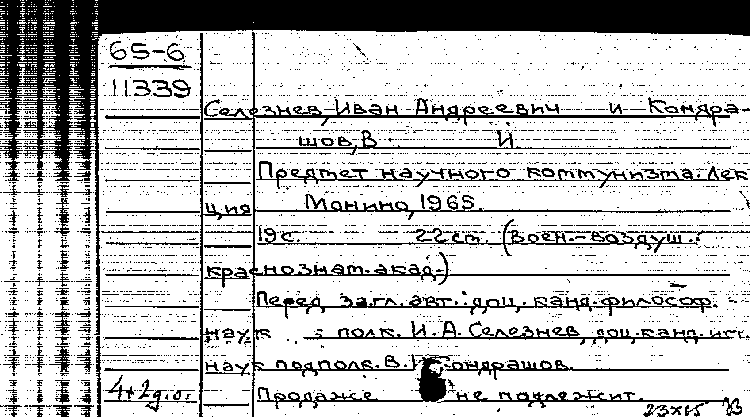 65-6
11339
Селезнев, Иван Андреевич и Кондра-
шов, В И.
Предмет научного коммунизма. Лек
ция Монино, 1965.
19 с. 22 см. (Воен.-воздуш.
краснознам. акад.)
Перед загл. авт.: доц. канд. философ.
наук полк. И. А. Селезнев, доц. канд. ист.
наук подполк. В. И. Кондрашов.
4+2 д.о. Продаже не подлежит.
23х65